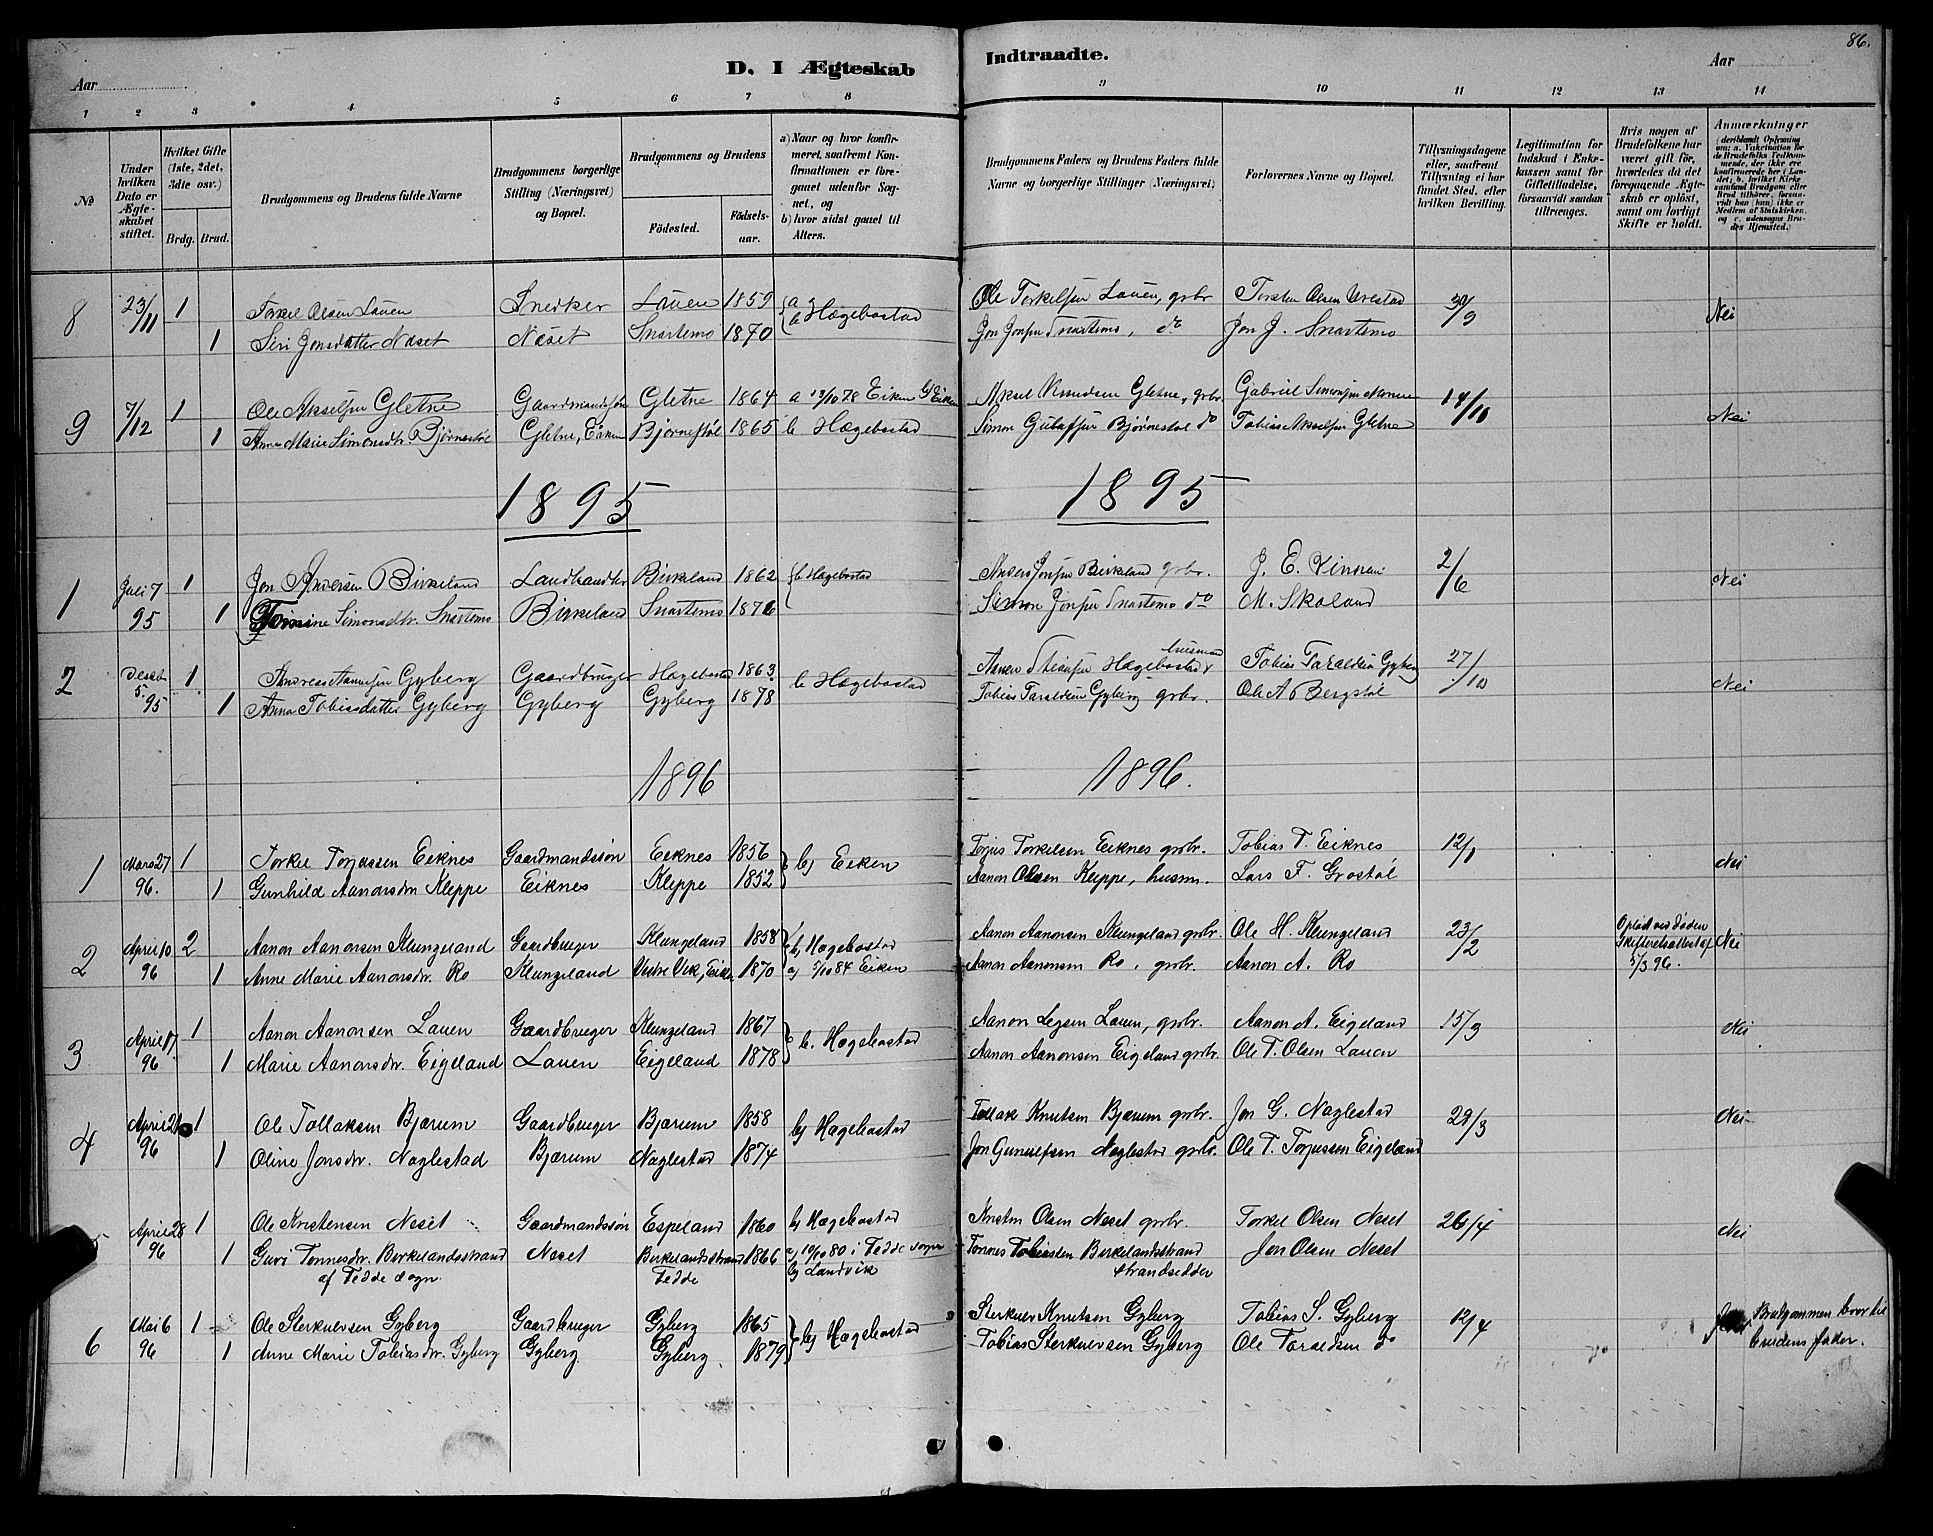 86.
Aar
D. I Ægteskab
Indtraadte.
Aar
1 2 3 4 5 6 7 8
9 10 11 12 13 14
No
Under hvilken Dato er Ægteskabet stiftet.
Hvilket Gifte (1ste, 2det, 3die osv.)
Brdg. Brud.
Brudgommens og Brudens fulde Navne
Brudgommens borgerlige Stilling (Næringsvei) og Bopæl.
Brudgommens og Brudens
Födested. Födselsaar.
a) Naar og hvor konfirmeret, saafremt Konfirmationen er foregaaet udenfor Sognet, og
b) hvor sidst gaaet til Alters.
Brudgommens Faders og Brudens Faders fulde Navne og borgerlige Stillinger (Næringsvei)
Forlovernes Navne og Bopæl.
Tillysningsdagene eller, saafremt Tillysning ei har fundet Sted, efter hvilken Bevilling.
Legitimation for Indskud i Enkekassen samt for Giftetilladelse, forsaavidt saadan tiltrænges.
Hvis nogen af Brudefolkene har været gift för, hvorledes da det foregaaende Ægteskab er oplöst, samt om lovligt Skifte er holdt.
Anmærkninger
(deriblandt Oplysning om: a. Vakcination for de Brudefolks Vedkommende, der ikke ere konfirmerede her i Landet, b. hvilket Kirkesamfund Brudgom eller Brud tilhörer, forsaavidt han (hun) ikke er Medlem af Statskirken, og c. udensogns Brudes Hjemsted.)
8 23/11 1 Torkel Olsen Lauen Snedker Lauen 1859 a b Hægebostad Ole Torkelsen Lauen, grbr Torsten Olsen Urestad 30/9 Nei
1 Siri Jonsdatter Næset Næset Snartemo 1870 Jon Jonsen Snartemo, do Jon J. Snartemo
9 7/12 1 Ole Akselsen Gletne Gaardmandssøn Gletne 1864 a 13/10 78 Eiken Aksel Knudsen Gletne, grbr. Gabriel Simonsen 14/10 Nei
1 Anne Marie Simonsdtr. Bjørnestøl Gletne, Eiken Bjørnestøl 1865 b Hægebostad Simon Bjørnestøl do Tobias Akselsen Gletne
1895
1895
1 Juli 7 1 Jon Andersen Birkeland Landhandler Birkeland 1862 b Hægebostad Anders Jonsen Birkeland grbr. J. E. 2/6 Nei
95 1 Simonsdtr. Snartemo Birkeland Snartemo Simon Jonsen Snartemo do M. Skoland
2 Decbr 5 1 Andreas Aanensen Gyberg Gaardbruger Hægebostad 1863 b Hægebostad Aanen Hægebostad husmand Tobias Taraldsen Gyberg 27/10 Nei
95 1 Anna Tobiasdatter Gyberg Gyberg Gyberg 1878 Tobias Taraldsen Gyberg grbr. Ole A Bergstøl
1896
1896.
1 Mars 27 1 Torkel Torjussen Eiknes Gaardmandssön Eiknes 1856 b) Eiken Torjus Torkelsen Eiknes grbr. Tobias T. Eiknes 12/1 Nei
96. 1 Gunhild Aanonsdtr. Kleppe Eiknes Kleppe 1852 Aanon Olsen Kleppe, husm. Lars F. Grostöl
2 April 10 2 Aanon Aanonsen Klungeland Gaardbruger Klungeland 1858 b) Hægebostad Aanon Aanonsen Klungeland grbr. Ole H. Klungeland 23/2 Oplöst ved döden Nei
96 1 Anne Marie Aanonsdtr. Ro Klungeland Eiken 1870 a) 5/10 84 Eiken Aanon Aanonsen Ro, grbr. Aanon A. Ro 5/3 96.
3 April 17 1 Aanon Aanonsen Lauen Gaardbruger Klungeland 1867 b. Hægebostad Aanon Lauen, grbr. Aanon A. Eigeland 15/3 Nei
96 1 Marie Aanonsdtr. Eigeland Lauen Eigeland 1878 Aanon Aanonsen Eigeland grbr. Ole T. Olsen Lauen
4 April 21 1 Ole Tollaksen Bjærum Gaardbruger Bjærum 1858 b) Hægebostad Tollak Knutsen Bjærum grbr. Jon G. Naglestad 29/3 Nei
96 1 Oline Jonsdtr. Naglestad Bjærum Naglestad 1874 Jon Gunulfsen Naglestad grbr. Ole T. Torjussen Eigeland
5 April 28 1 Ole Kristensen Neset Gaardmandssön Espeland 1860 b) Hægebostad Kristen Olsen Neset grbr. Torkel Olsen Neset 26/4 Nei
96 1 Guri Tonnesdtr. Birkelandsstrand Neset Birkelandsstrand 1866 a) 10/10 80 i Fedde sogn Tonnes Tobiassen Birkelandsstrand Jon Olsen Neset
af Fedde sogn. Fedde b) Landvik strandsidder
6 Mai 6 1 Ole Sterkuersen Gyberg Gaardbruger Gyberg 1865 b) Hægebostad Sterkuer Knutsen Gyberg Tobias S. Gyberg 12/4 Brudgommen bror til
96 1 Anne Marie Tobiasdtr. Gyberg Gyberg Gyberg 1879 Tobias Sterkuersen Gyberg Ole Taraldsen do brudens fader.